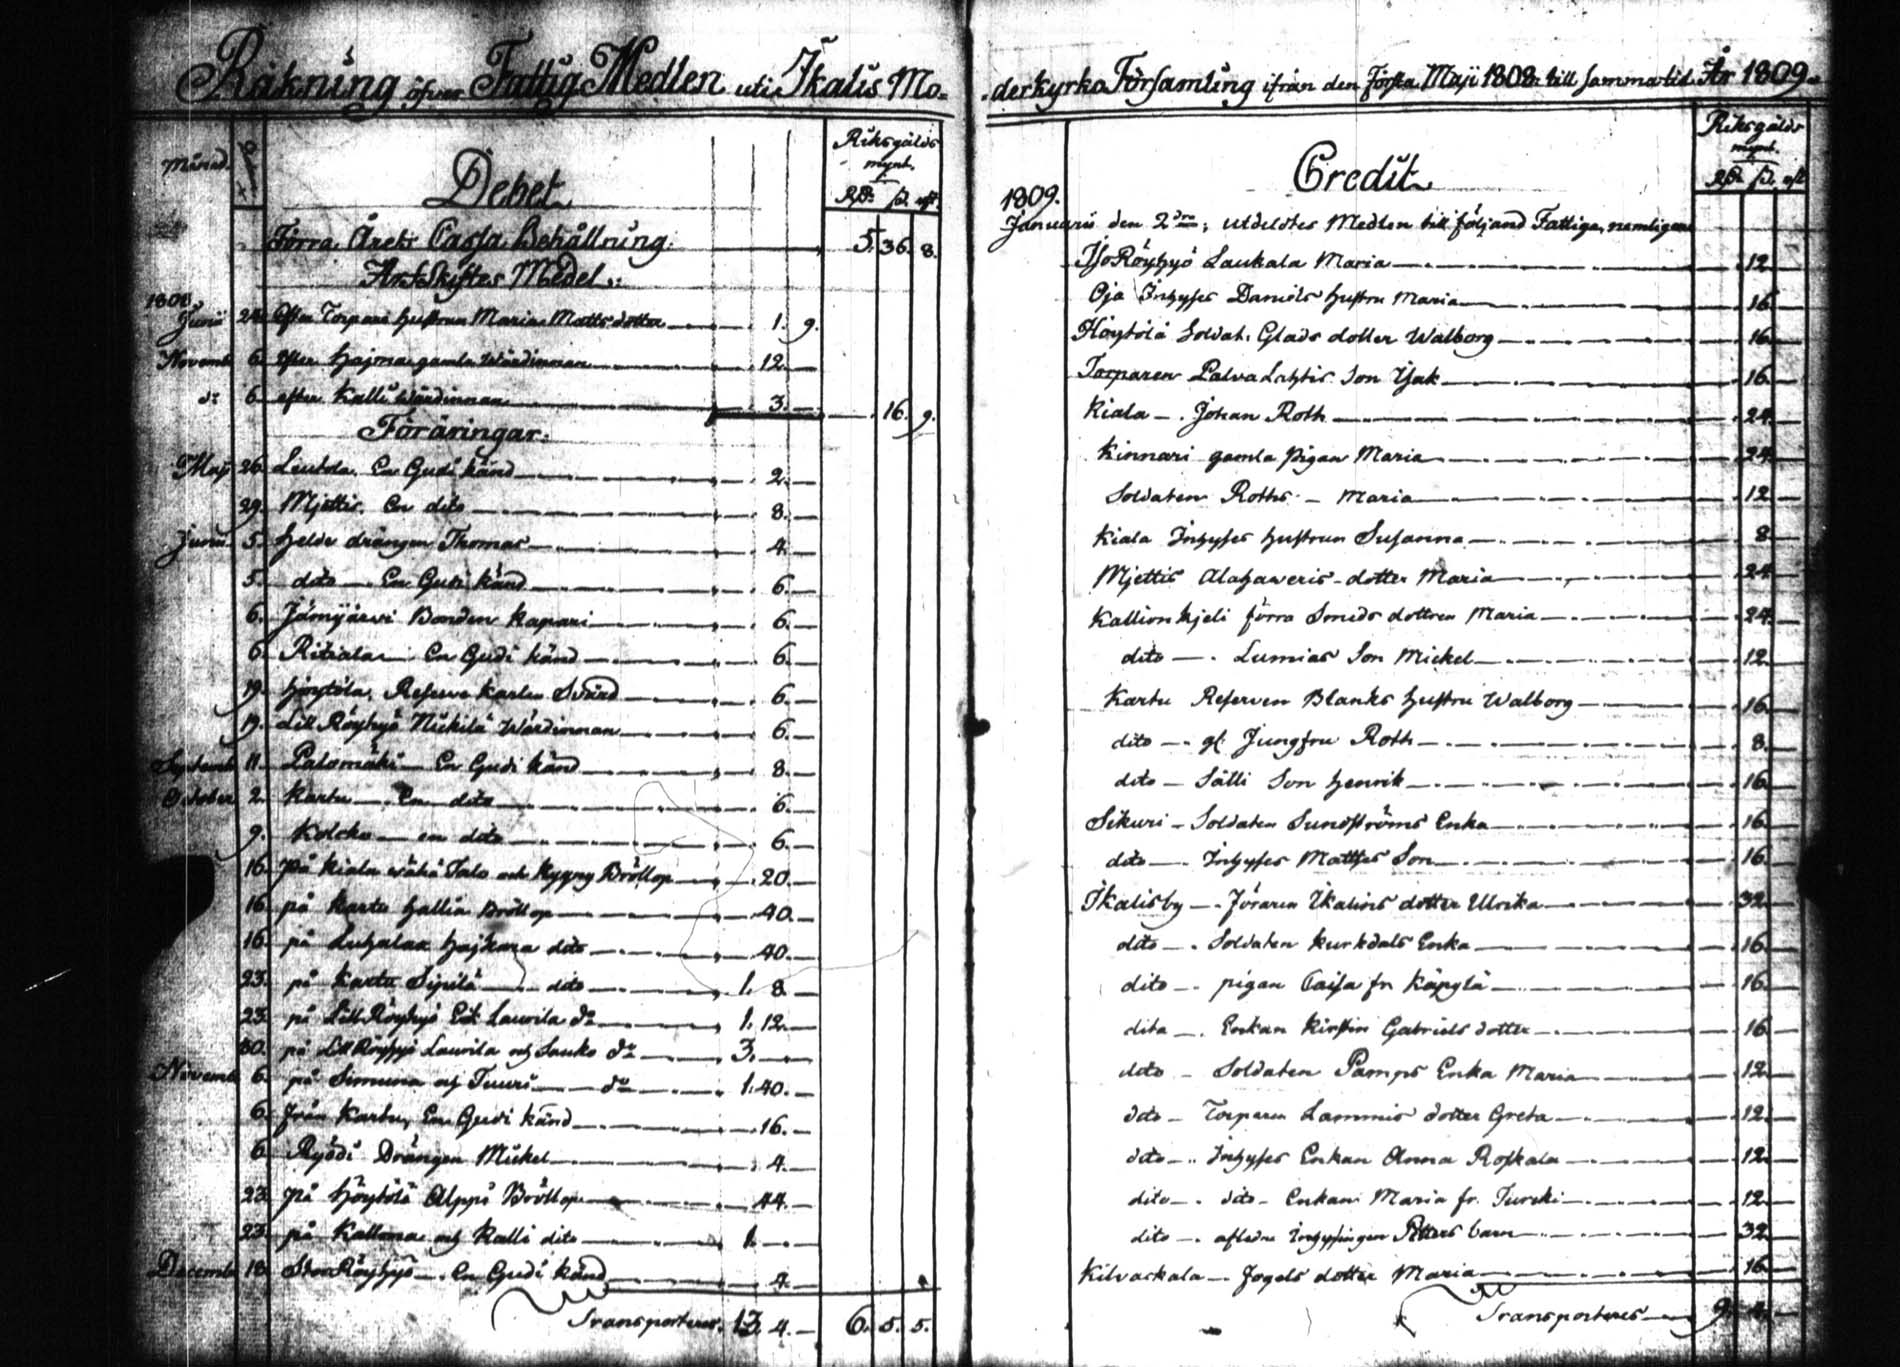 Räkning öfver Fattig Medlen uti Ikalis Mo=
Månad.
Riksgälds
mynt.
Debet
Rd. s. rst.
Förra Årets Cassa Behållning. 5. 36. 8.
Arfskiftes Medel:
1808.
Junii 24. Efter Torpare hustrun Maria Mattsdotter 1. 9.
Novemb 6. efter Hajma gamla Wärdinnan 12.
do 6. efter Kalli Wärdinnan 3. 16. 9.
Föräringar:
Maji 26. Leutola. En Gudi känd 2.
29. Mjettis. En dito 8.
Junii 5. Helde drängen Thomas 4.
5. dito En Gudi känd 6.
6. Jämijärvi Bonden Kapari 6.
6. Ritiala En Gudi känd 6.
19. Höytölä. Reserve Karlen Svärd 6.
19. Lill Röyhyö Nickilä Wärdinnan 6.
Septemb 11. Palomäki En Gudi känd 8.
October 2. Kartu En dito 6.
9. Kolcko en dito 6.
16. På Kiala wähä Talo och Kyyny Bröllop 20.
16. på Kartu Hallia Bröllop 40.
16. på Luhalax Hajkara dito 40.
23. på Kartu Sipilä dito 1. 8.
23. på Lill Röyhyö Erk Laurila do 1. 12.
30. på Lill Röyhyö Laurila och Sauko do 3.
Novemb 6. på Simuna och Tuuri do 1. 40.
6. från Kartu, En Gudi känd 16.
6. Ryödi Drängen Mickel 4.
23. På Höytölä Alppi Bröllop 44.
23. på Kalloma och Kalli dito 1.
Decemb 18. Stor Röyhyö En Gudi känd 4.
Transporteres. 13. 4. 6. 5. 5.
derkyrko Församling ifrån den Första Maji 1808 till samma tid År 1809.
Riksgälds
mynt.
Credit
Rd. s. rst
1809.
Januarii den 2dra, utdeltes Medlen till följand Fattiga, nemligen
Iso Röyhyö Laukala Maria 12.
Oja Inhyses Daniels hustru Maria 16.
Höytölä Soldat. Glads dotter Walborg 16.
Torparen Palva Lahtis Son Isak 16.
Kiala Johan Roth 24.
Kinnari gamla pigan Maria 24.
Soldaten Roths Maria 12.
Kiala Inhyses hustrun Susanna 8.
Mjettis Alahaweris dotter Maria 24.
Kallionkjeli förra Smeds dottren Maria 24.
dito Lumias Son Mickel 12.
Kartu Reserven Blanks hustru Walborg 16.
dito gl. Jungfru Roth 8.
dito Sälli Son Henrik 16.
Sikuri Soldaten Sundströms Enka 16.
dito Inhyses Matthes Son 16.
Ikalisby Föraren Ikalins dotter Ulrika 32.
dito Soldaten Kurkdals Enka 16.
dito pigan Caisa fr. Käpylä 16.
dito Enkan Kirstin Gabriels dotter 16.
dito Soldaten Pamps Enka Maria 12.
dito Torparen Lammis dotter Greta 12.
dito Inhyses Enkan Anna Roskala 12.
dito dito Enkan Maria fr. Turcki 12.
dito afledne Inhysingen Petters barn 32.
Kilvackala Fogels dotter Maria 16.
Transporteres 9. 4.